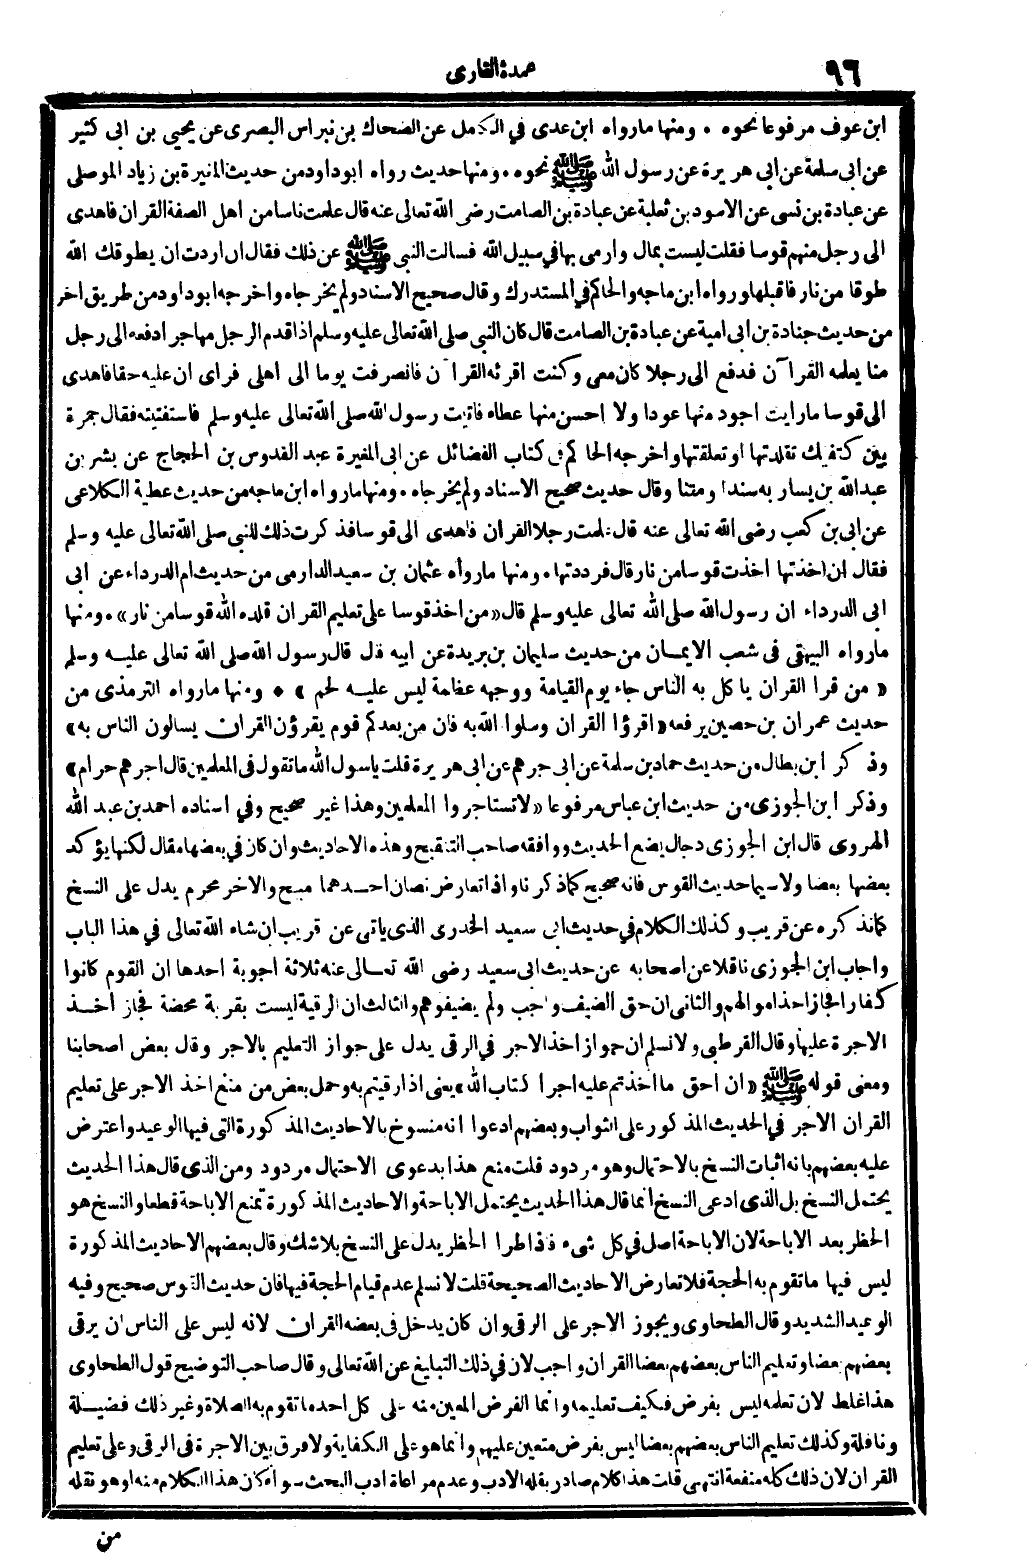 ٩٦
عمدة القارى
ابن عوف مرفوعا نحوه ٠ ومنها مارواه ابن عدى في الكامل عن الضحاك بن نبراس البصرى عن يحيى بن ابى كثير
عن ابى سلمة عن ابى هريرة عن رسول الله ﷺ نحوه ٠ ومنها حديث رواه ابوداود من حديث المغيرة بن زياد الموصلى
عن عبادة بن نسى عن الاسود بن ثعلبة عن عبادة بن الصامت رضى الله تعالى عنه قال علمت ناسا من اهل الصفة القران فاهدى
الى رجل منهم قوسا فقلت ليست بمال وارمى بها في سبيل الله فسالت النبى ﷺ عن ذلك فقال ان اردت ان يطوقك الله
طوقا من نار فاقبلها ورواه ابن ماجه والحاكم في المستدرك وقال صحيح الاسناد ولم يخرجاه واخرجه ابوداود من طريق اخر
من حديث جنادة بن ابى امية عن عبادة بن الصامت قال كان النبى صلى الله تعالى عليه وسلم اذا قدم الرجل مهاجر ادفعه الى رجل
منا يعلمه القرآن فدفع الى رجلا كان معى وكنت اقرئه القرآن فانصرفت يوما الى اهلى فراى ان عليه حقا فاهدى
الى قوسا مارايت اجود منها عودا ولا احسن منها عطاء فاتيت رسول الله صلى الله تعالى عليه وسلم فاستفتيته فقال جمرة
بين كتفيك تقلدتها او تعلقتها واخرجه الحاكم فى كتاب الفضائل عن ابى المغيرة عبد القدوس بن الحجاج عن بشر بن
عبدالله بن يسار به سندا ومتنا وقال حديث صحيح الاسناد ولم يخرجاه ٠ ومنها مارواه ابن ماجه من حديث عطية الكلاعى
عن ابى بن كعب رضى الله تعالى عنه قال علمت رجلا القران فاهدى الى قوسا فذكرت ذلك للنبى صلى الله تعالى عليه وسلم
فقال ان اخذتها اخذت قوسا من نار قال فرددتها ٠ ومنها مارواه عثمان بن سعيد الدارمى من حديث ام الدرداء عن ابى
ابى الدرداء ان رسول الله صلى الله تعالى عليه وسلم قال «من اخذ قوسا على تعليم القران قلده الله قوسا من نار» ٠ ومنها
مارواه البيهقى فى شعب الايمان من حديث سليمان بن بريدة عن ابيه قال قال رسول الله صلى الله تعالى عليه وسلم
« من قرا القران ياكل به الناس جاء يوم القيامة ووجهه عظمة ليس عليه لحم » ٠ ومنها مارواه الترمذى من
حديث عمران بن حصين يرفعه «اقرؤا القران وسلوا الله به فان من بعدكم قوم يقرؤن القران يسالون الناس به»
وذكر ابن بطال من حديث حماد بن سلمة عن ابى جرهم عن ابى هريرة قلت ياسول الله ماتقول فى المعلمين قال اجرهم حرام»
وذكر ابن الجوزى من حديث ابن عباس مرفوعا «لاتستاجروا المعلمين وهذا غير صحيح وفي اسناده احمد بن عبد الله
الهروى قال ابن الجوزى دجال يضع الحديث ووافقه صاحب التنقيح وهذه الاحاديث وان كان في بعضها مقال لكنها يؤكد
بعضها بعضا ولاسيما حديث القوس فانه صحيح كما ذكرنا واذا تعارض نصان احدهما مبيح والاخر محرم يدل على النسخ
كمانذكره عن قريب وكذلك الكلام في حديث ابى سعيد الخدرى الذى ياتى عن قريب ان شاء الله تعالى في هذا الباب
واجاب ابن الجوزى ناقلا عن اصحابه عن حديث ابى سعيد رضى الله تعالى عنه ثلاثة اجوبة احدها ان القوم كانوا
كفارا لجاز اخذ اموالهم والثانى ان حق الضيف واجب ولم يضيفوهم والثالث ان الرقية ليست بقربة محضة فجاز اخذ
الاجرة عليها وقال القرطبى ولانسلم ان جواز اخذ الاجر في الرقى يدل على جواز التعليم بالاجر وقال بعض اصحابنا
ومعنى قوله ﷺ «ان احق ما اخذتم عليه اجرا كتاب الله» يعنى اذا رقيتم به وحمل بعض من منع اخذ الاجر على تعليم
القران الاجر في الحديث المذكور على الثواب وبعضهم ادعوا انه منسوخ بالاحاديث المذكورة التى فيها الوعيد واعترض
عليه بعضهم بانه اثبات النسخ بالاحتمال وهو مردود قلت منع هذا بدعوى الاحتمال مردود ومن الذى قال هذا الحديث
يحتمل النسخ بل الذى ادعى النسخ انما قال هذا الحديث يحتمل الاباحة والاحاديث المذكورة تمنع الاباحة قطعا والنسخ هو
الحظر بعد الاباحة لان الاباحة اصل في كل شىء فاذا طرا الحظر يدل على النسخ بلا شك وقال بعضهم الاحاديث المذكورة
ليس فيها ماتقوم به الحجة فلا تعارض الاحاديث الصحيحة قلت لانسلم عدم قيام الحجة فيها فان حديث القوس صحيح وفيه
الوعيد الشديد وقال الطحاوى ويجوز الاجر على الرقى وان كان يدخل فى بعضه القران لانه ليس على الناس ان يرقى
بعضهم بعضا وتعليم الناس بعضهم بعضا القران واجب لان في ذلك التبليغ عن الله تعالى وقال صاحب التوضيح قول الطحاوى
هذا غلط لان تعلمه ليس بفرض فكيف تعليمه وانما الفرض المعين منه على كل احد ماتقوم به الصلاة وغير ذلك فضيلة
ونافلة وكذلك تعليم الناس بعضهم بعضا ليس بفرض متعين عليهم وانما هو على الكفاية ولا فرق بين الاجرة فى الرقى وعلى تعليم
القران لان ذلك كله منفعة انتهى قلت هذا كلام صادر بقلة الادب وعدم مراعاة ادب البحث سواء كان هذا الكلام منه او هو نقله
من